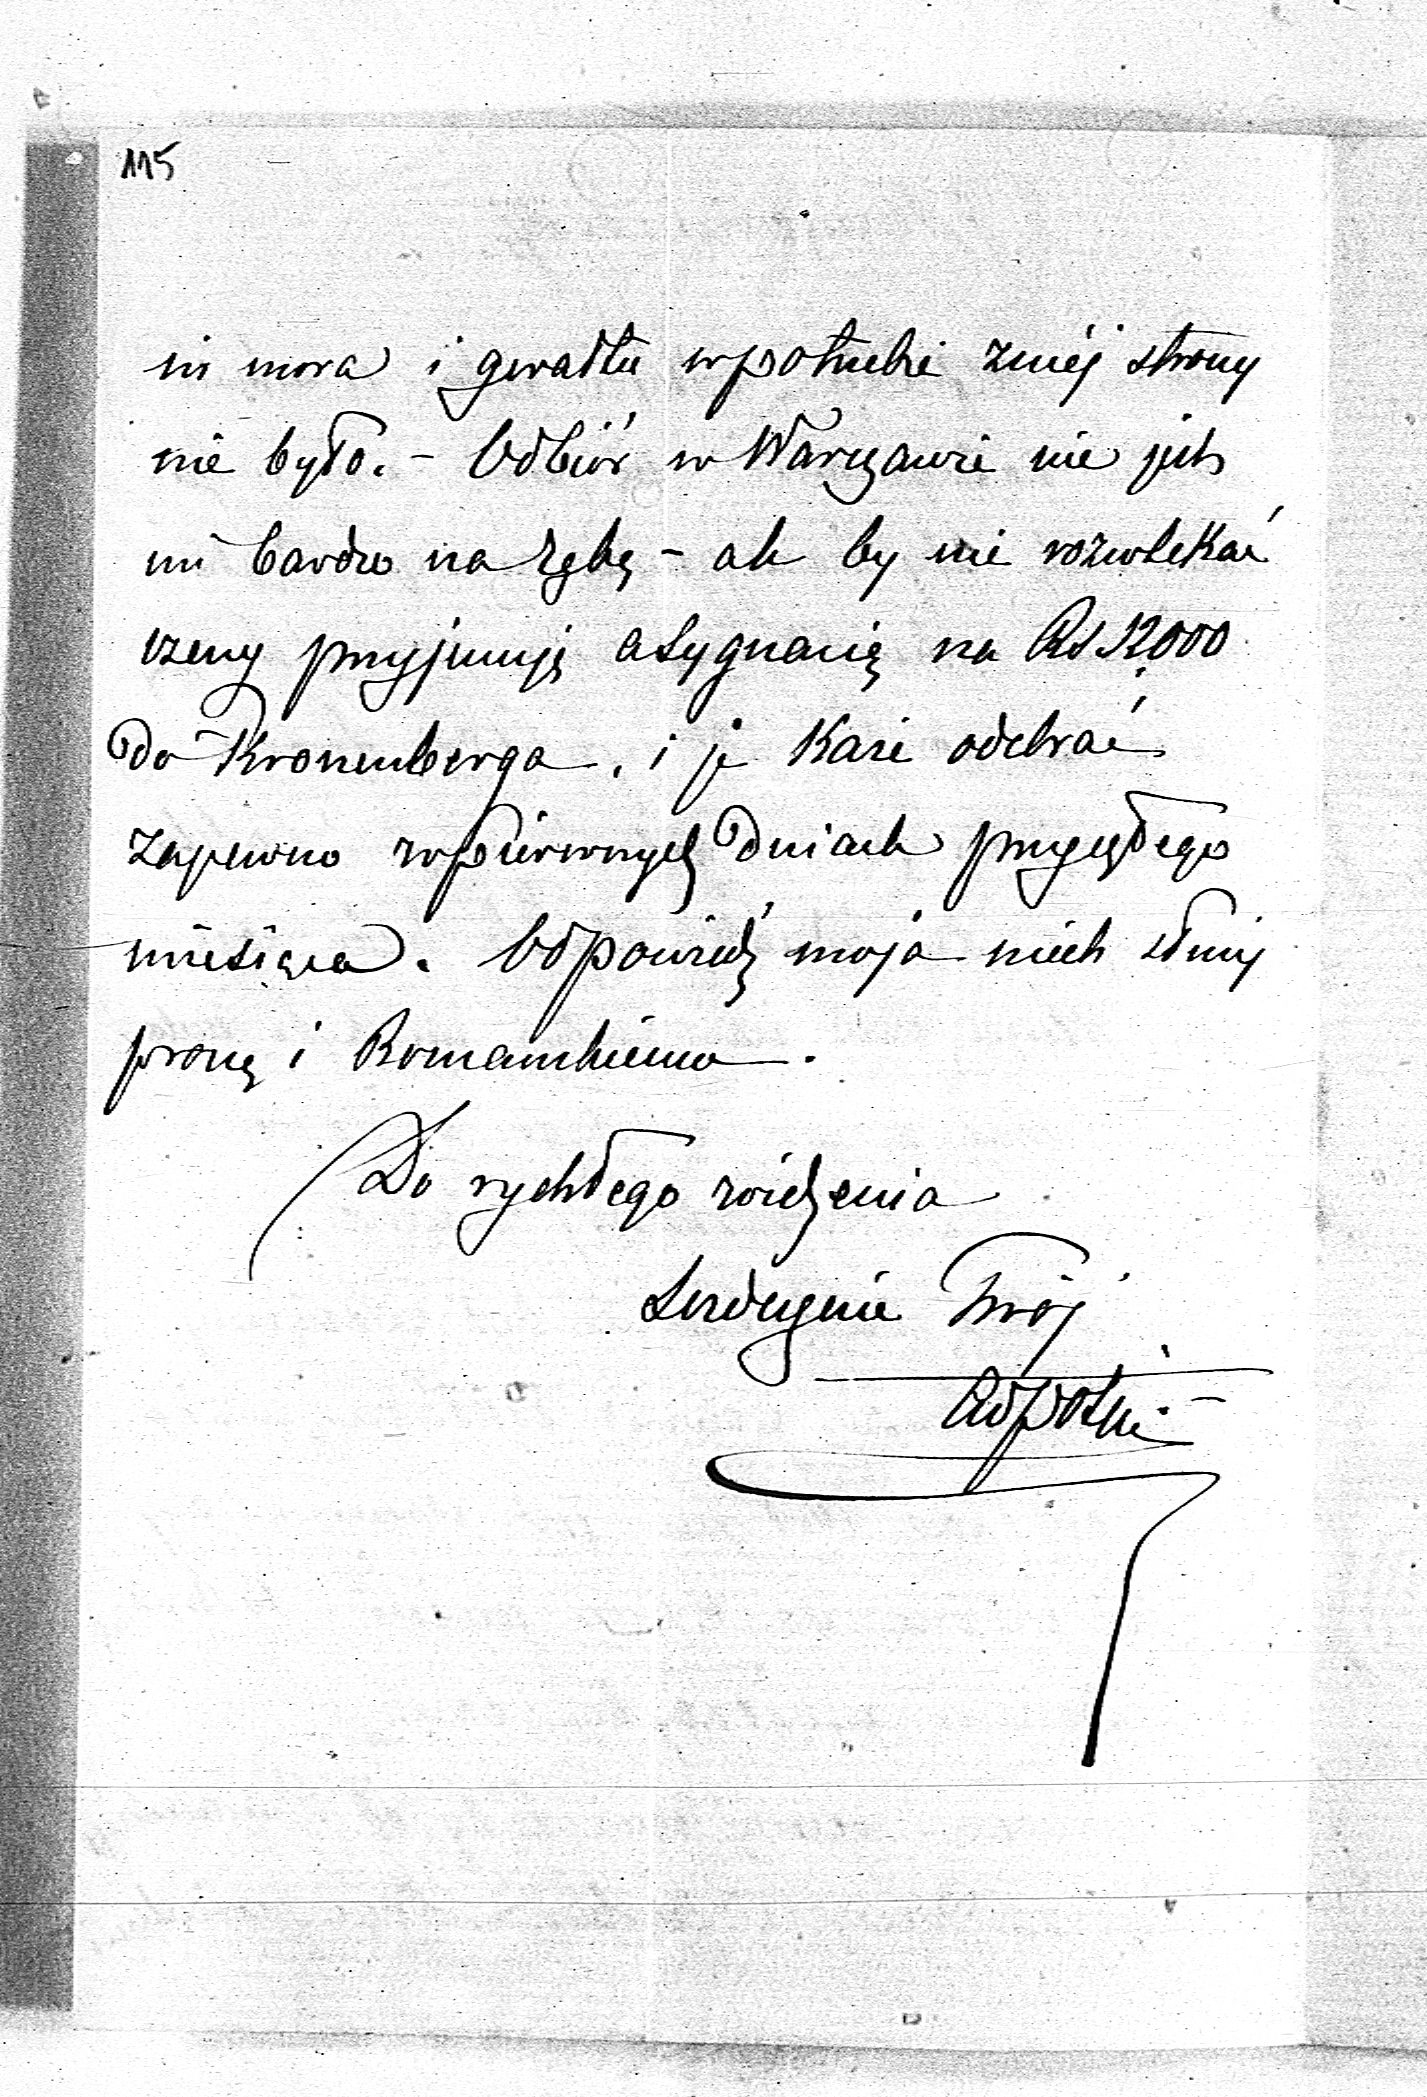 115
ni mora i gwałtu w potrzebie z méj strony
nie było. – Odbiór w Warszawie nie jest
mi bardzo na rękę – ale by nie rozwlekać
rzeczy przyjmuję asygnacię na Rs 12000
do Kronenberga, i je każę odebrać
zapewno w piérwszych dniach przyszłego
miesiąca. Odpowiedź moja niech służy
proszę i Romanskiemu.
Do rychłego widzenia
Serdecznie Twój